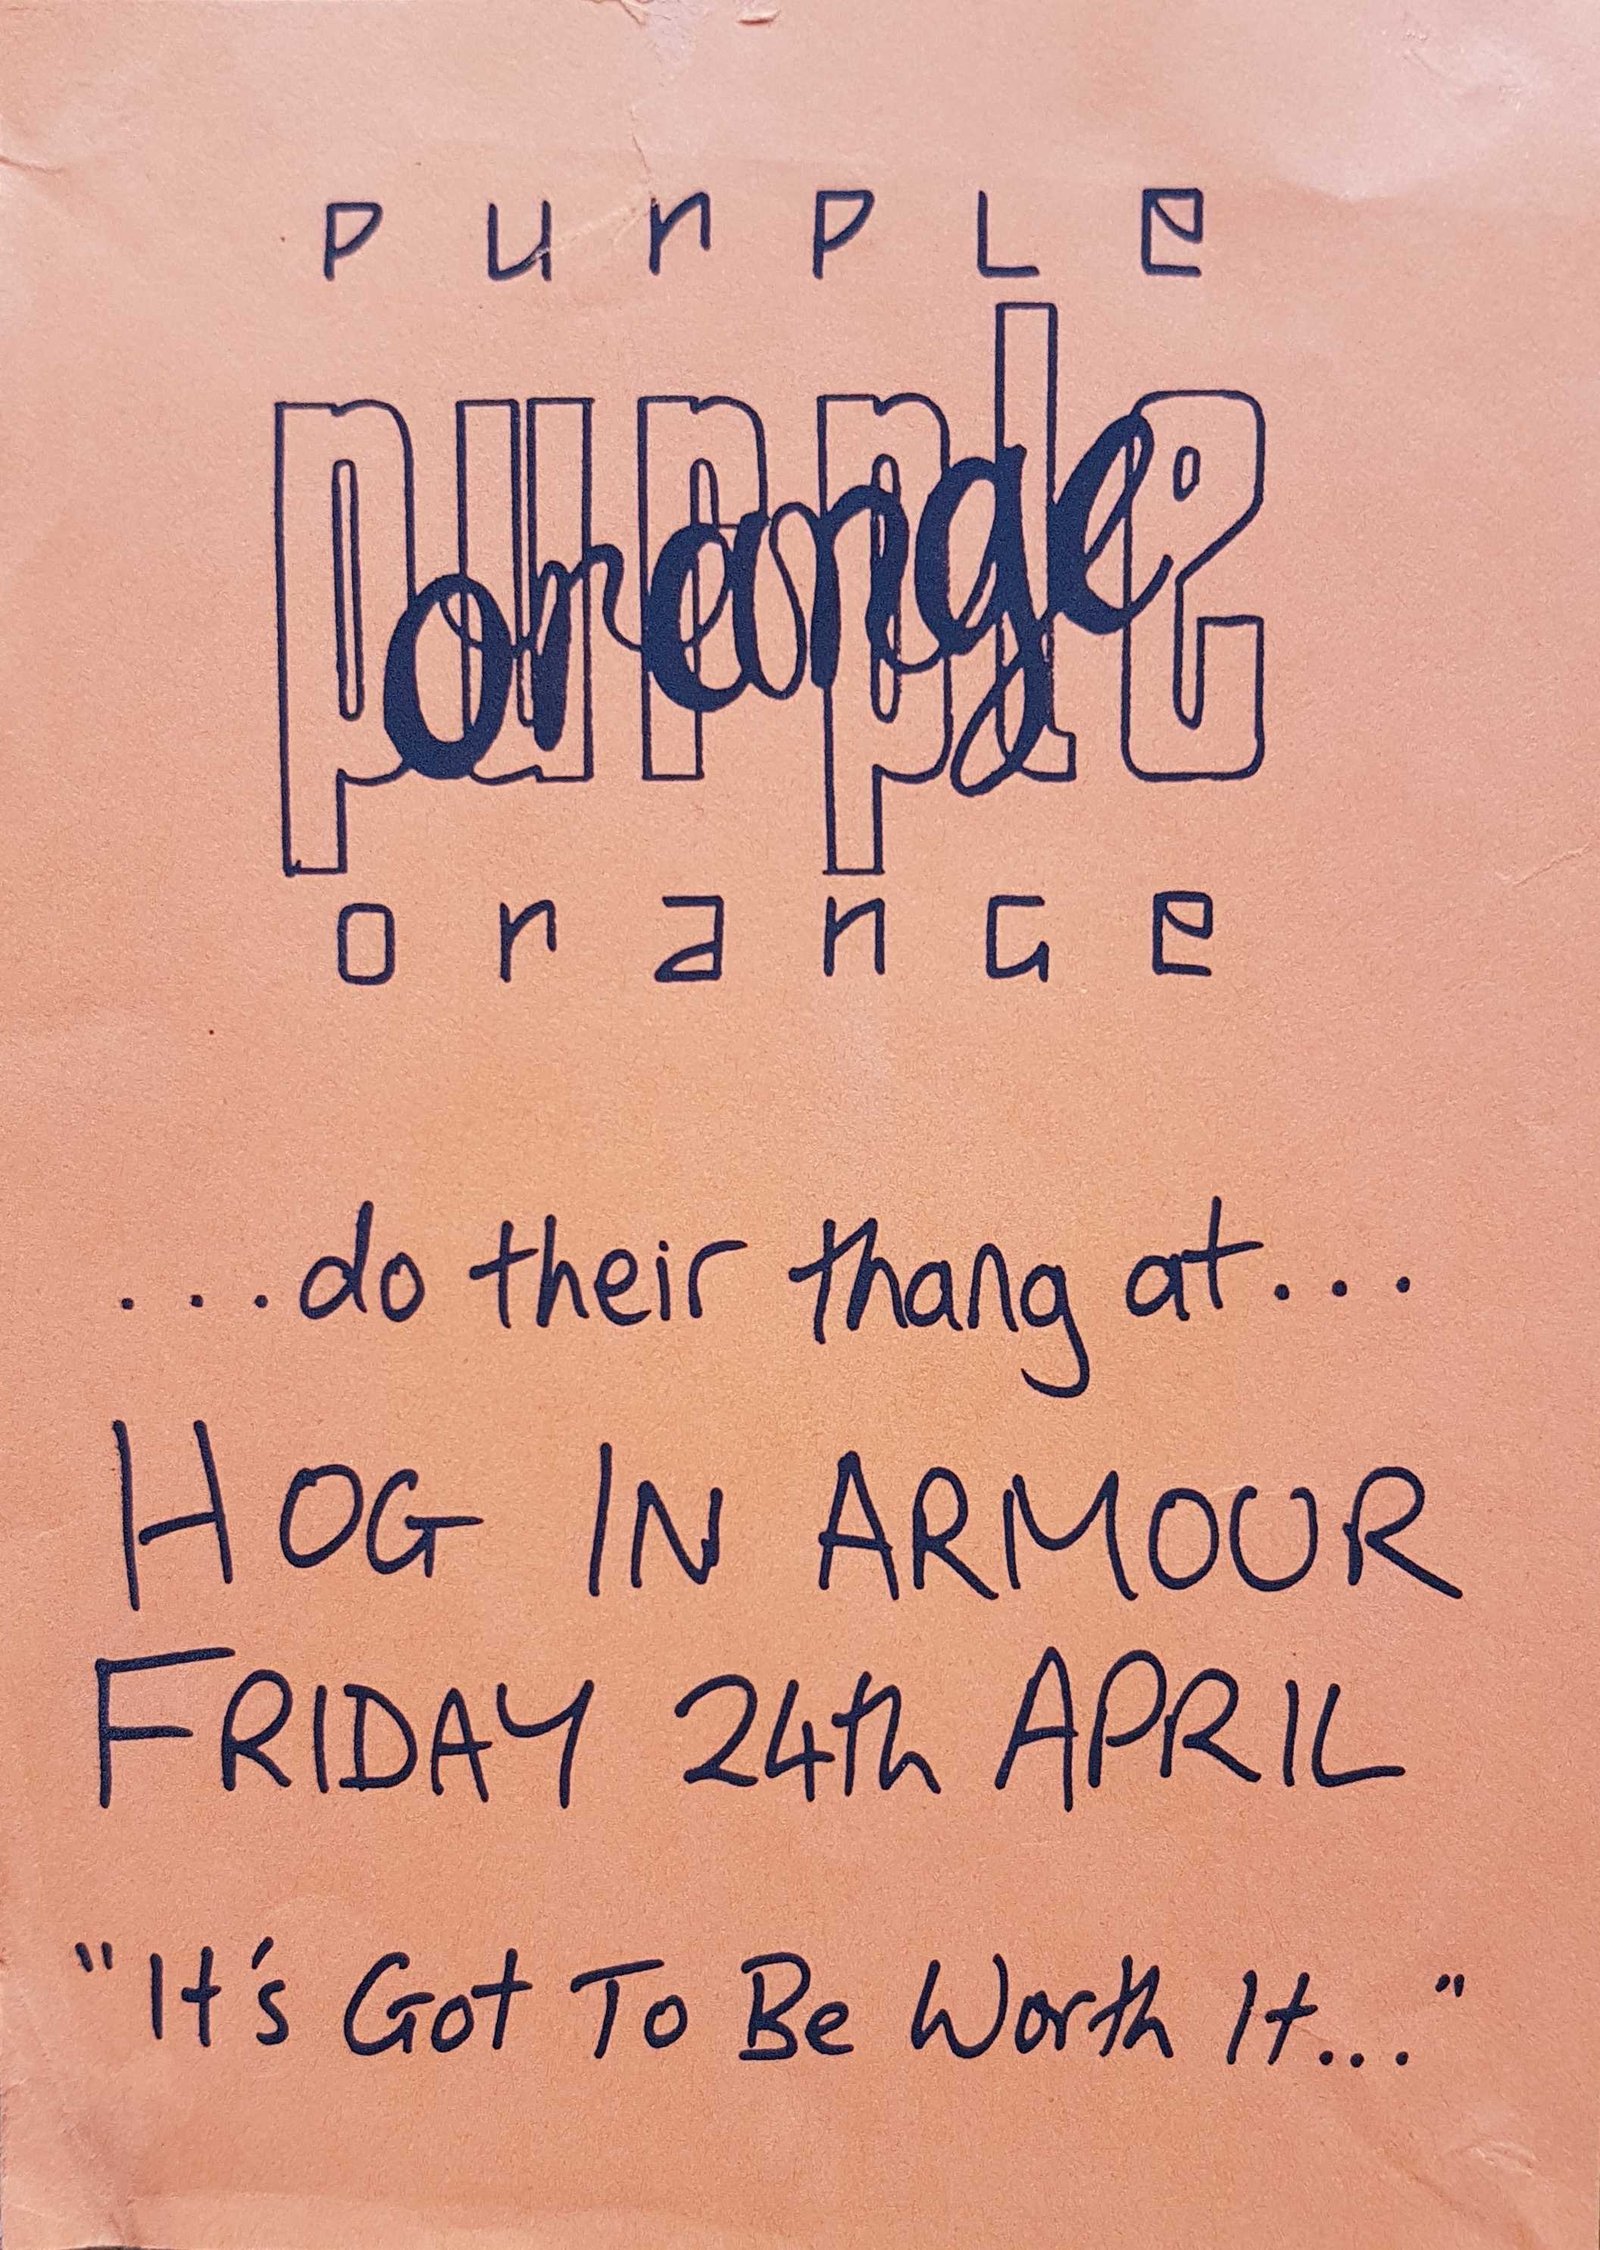 purPLe
purple
orange
oranGe
...do their thang at...
HOG IN ARMOUR
FRIDAY 24th APRIL
"It's Got To Be Worth It..."